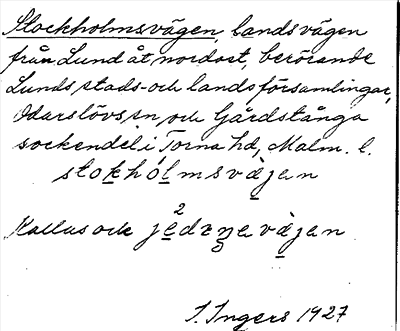 Stockholmsvägen, landsvägen
från Lund åt nordost, berörande
Lunds stads- och landsförsamlingar,
Odarslövs sn, och Gårdstånga
sockendel i Torna hd, Malm. l.
stokholmsvàjen
Kallas ock
I. Ingers 1927